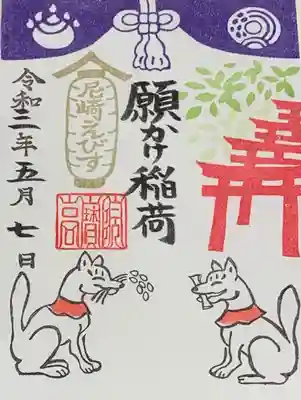 願かけ稲荷
尼崎えびす
令和二年五月七日